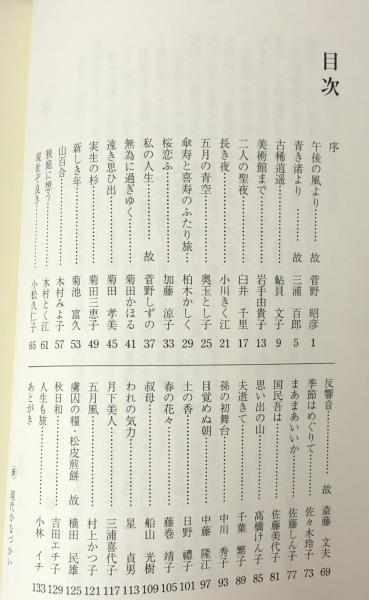 目次
序
午後の風より………… 故 菅野 昭彦 1
青き渚より………… 故 三浦 百郎 5
古稀逍遥………… 鮎貝 文子 9
美術館まで………… 岩手由貴子 13
二人の聖夜………… 臼井 千里 17
長き夜………… 小川きく江 21
五月の青空………… 奥玉とし子 25
傘寿と喜寿のふたり旅… 柏木かしく 29
桜恋ふ………… 加藤 涼子 33
私の人生………… 故 菅野しずの 37
無為に過ぎゆく………… 菊田かほる 41
遠き思ひ出………… 菊田 孝美 45
実生の杉………… 菊田三恵子 49
新しき年………… 菊池 富久 53
山百合………… 木村みよ子 57
狭庭に想う………… 木村とく江 61
現世ぞ良き………… 小松久仁子 65
反響音………… 故 斎藤 文夫 69
季節はめぐりて………… 佐々木玲子 73
まあまあいいか………… 佐藤しん子 77
国民吾は………… 佐藤美代子 81
思い出の山………… 高橋けん子 85
夫逝きて………… 千葉 繁子 89
孫の初舞台………… 中川 秀子 93
目覚めぬ朝………… 中藤 隆江 97
土の香………… 日野 禮子 101
春の花々………… 藤巻 靖子 105
叔母………… 船山 光樹 109
われの気力………… 星 貞男 113
月下美人………… 三浦喜代子 117
五月風………… 村上かつ子 121
虜囚の糧・松皮煎餅 故 横田 民雄 125
秋日和………… 吉田エチ子 129
人生も旅………… 小林 イチ 133
あとがき
現代かなづかい